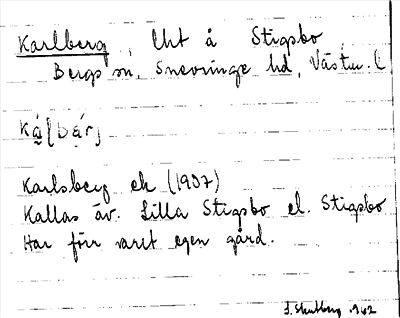 Karlberg, Uht å Stigsbo
Bergs sn, Snevringe hd, Västm. l
Karlsberg ek (1937)
Kallas äv. Lilla Stigsbo el. Stigsbo
Har förr varit egen gård.
1942